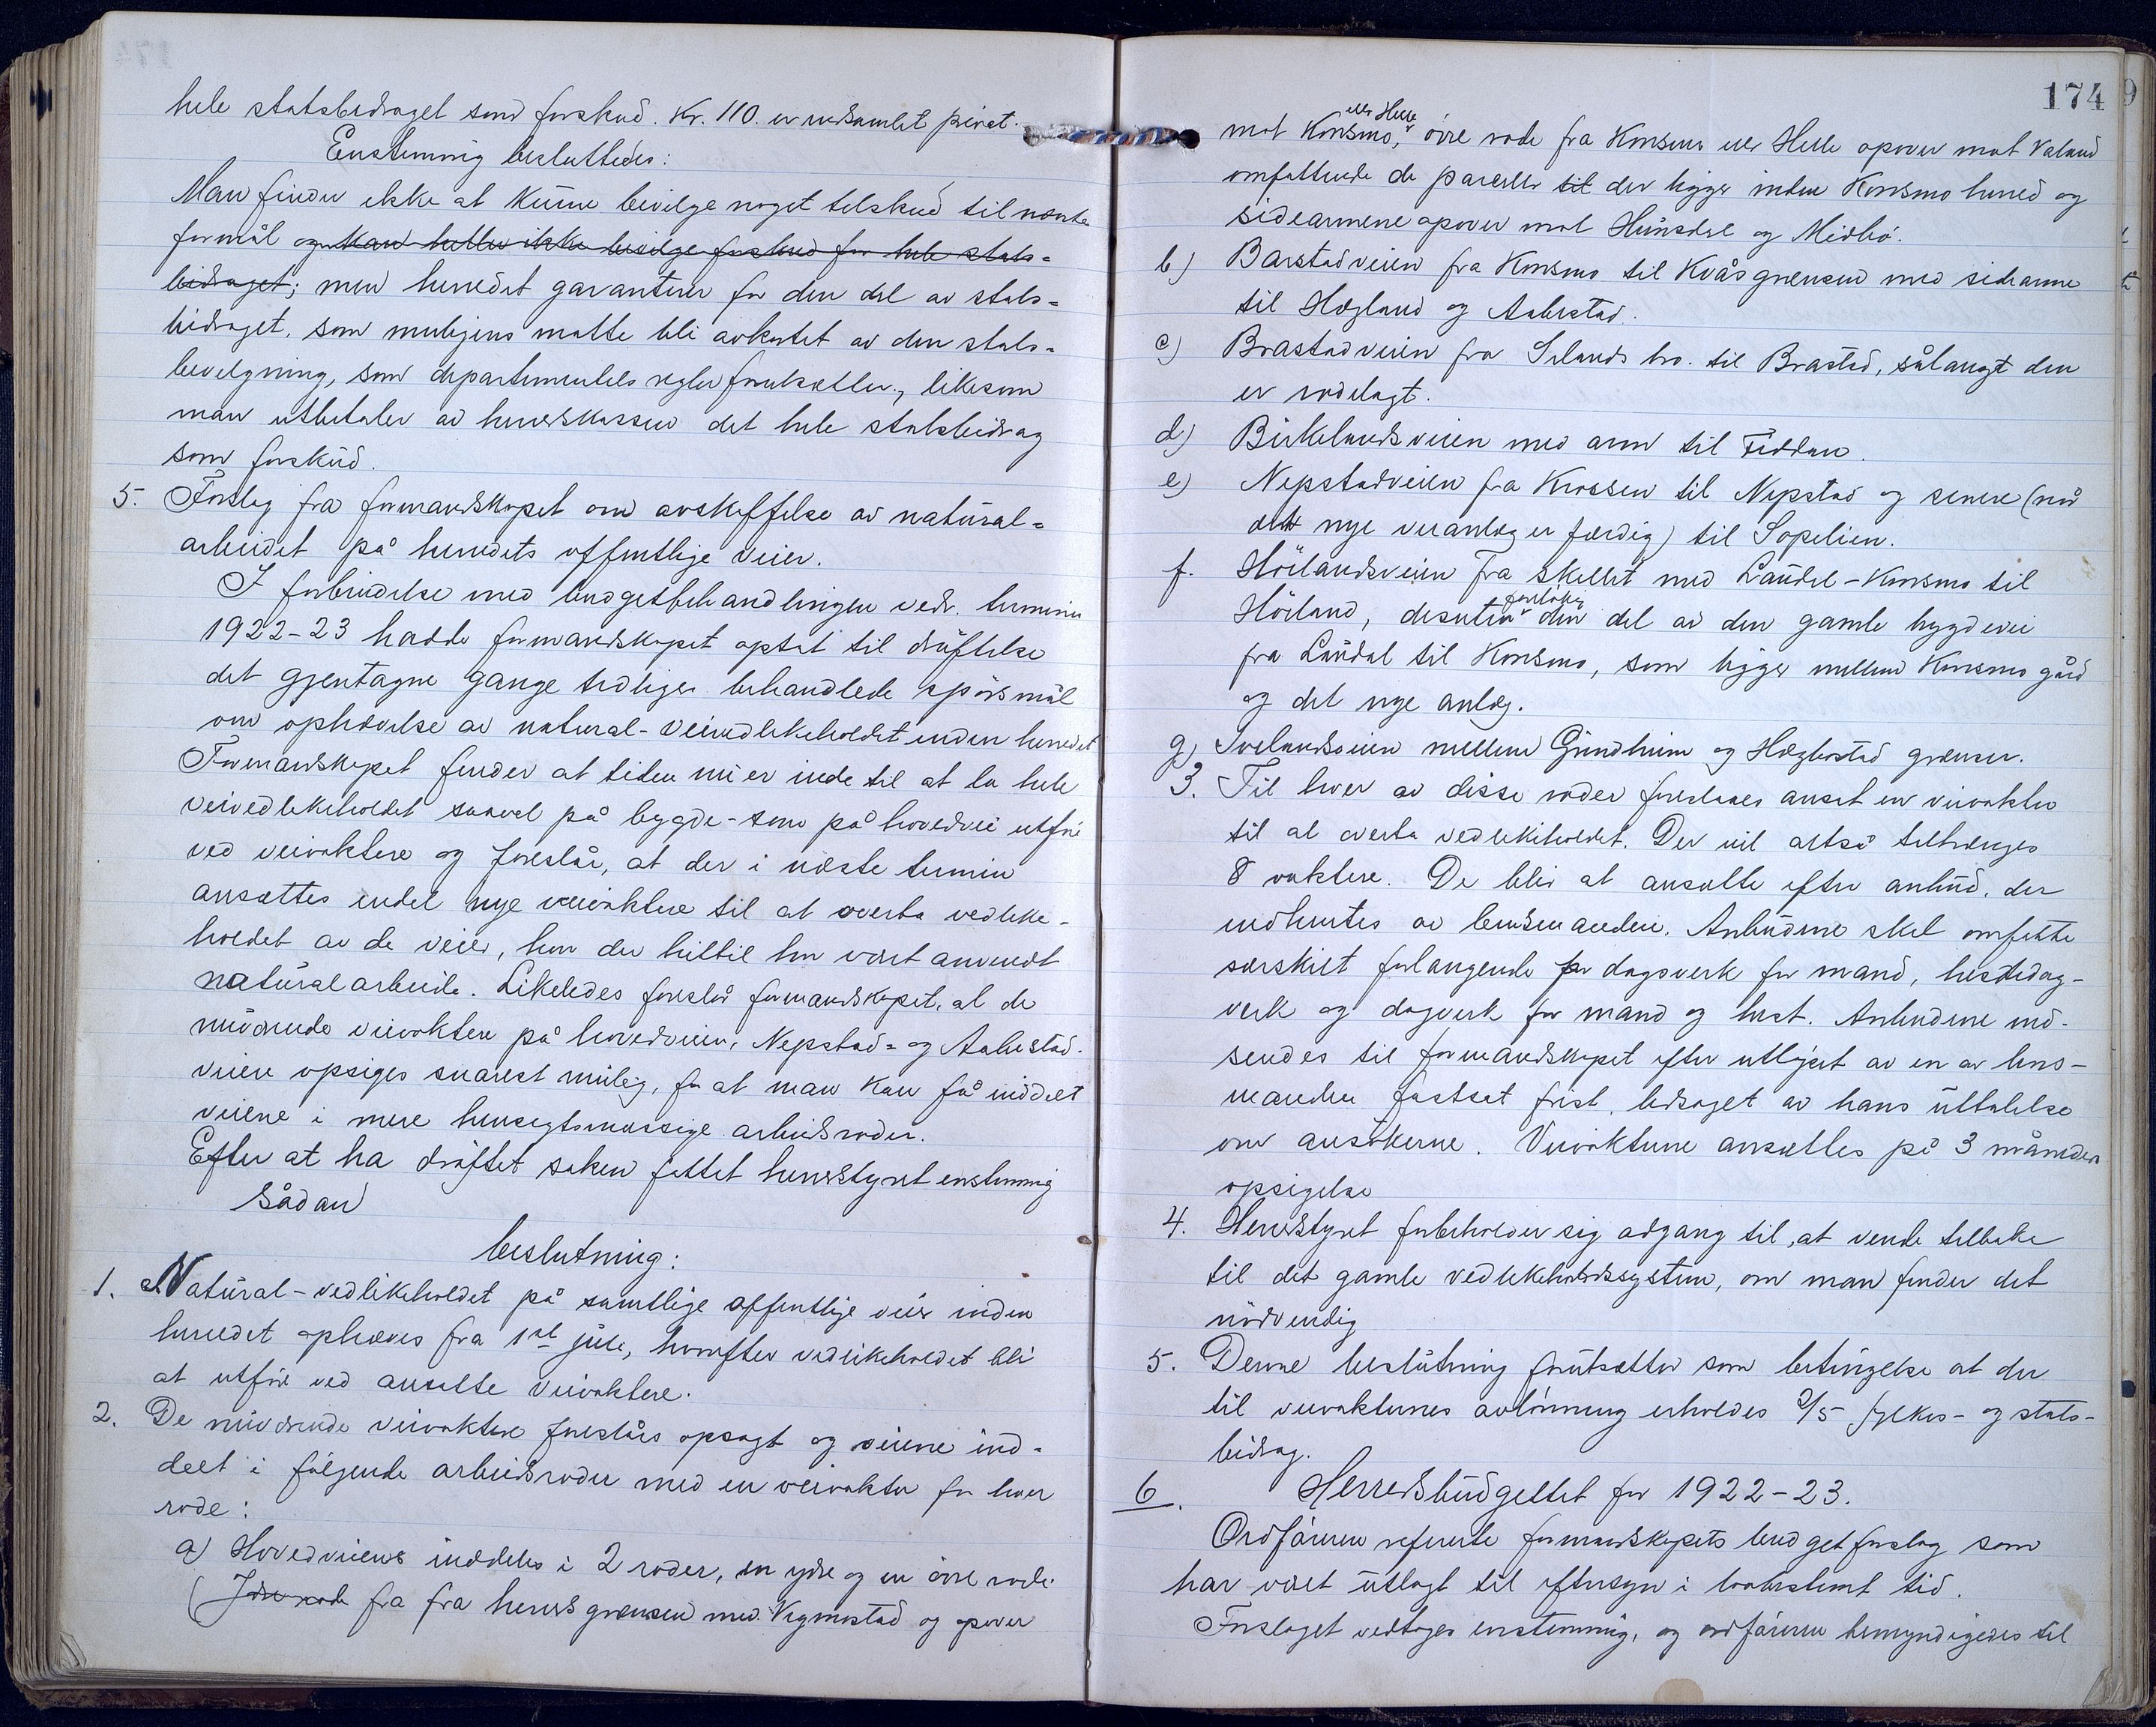 hele statsbidraget som forskud. Kr. 110. er indsamlet privat.
Enstemmig besluttedes:
Man finder ikke at kunne bevilge noget tilskud til nævnte
formål og kan heller ikke bevilge forskud for hele stats-
bidraget; men herredet garanterer for den del av stats-
bidraget, som muligens måtte bli avkortet av den stats-
bevilgning, som departementets regler forutsætter, likesom
man utbetaler av herredskassen det hele statsbidrag
som forskud.
5. Forslag fra formandskapet om avskaffelse av natural-
arbeidet på herredets offentlige veier.
I forbindelse med budgetbehandlingen vedr. termin
1922-23 hadde formandskapet optat til drøftelse
det gjentagne gange tidligere behandlede spörsmål
om ophævelse av natural-veivedlikeholdet inden herredet
Formandskapet finder at tiden nu er inde til at la hele
veivedlikeholdet saavel på bygde- som på hovedvei utføre
ved veivoktere og foreslår, at der i næste termin
ansættes endel nye veivoktere til at overta vedlike-
holdet av de veier, hvor der hittil har været anvendt
naturalarbeide. Likeledes foreslår formandskapet, at de
nuværende veivoktere på hovedveien, Nepstad- og Aabestad-
veiene opsiges snarest mulig, for at man kan få inddelt
veiene i mere hensigtsmæssige arbeidsroder.
Efter at ha drøftet saken fattet herredstyret enstemmig
sådan
beslutning:
1. Natural-vedlikeholdet på samtlige offentlige veier inden
herredet ophæves fra 1ste juli, hvorefter vedlikeholdet bli
at utføre ved ansatte veivoktere.
2. De nuværende veivoktere foreslåes opsagt og veiene ind-
delt i følgende arbeidsroder med en veivokter for hver
rode:
a) Hovedveiene inddeles i 2 roder, en ydre og en övre rode.
(Ydre rode fra fra herredsgrænsen med Vigmostad og opover
174
eller Helle
mot Konsmo, övre rode fra Konsmo eller Helle opover mot Valand
omfattende de parceller til der ligger inden Konsmo herred og
sidearmene opover mot Hunsdal og Midbö.
b) Barstadveien fra Konsmo til Kvåsgrænsen med sidearme
til Hægland og Aabestad.
c) Brastadveien fra Selands bro. til Brastad, sålangt den
er rodelagt.
d) Birkelandsveien med arm til Fiddan.
e) Nepstadveien fra Krossen til Nepstad og senere (når
det nye veranlæg er færdig) til Sopelien.
f. Höilandsveien fra skellet med Laudal-Konsmo til
foreløbig
Höiland, desuten den del av den gamle bygdevei
fra Laudal til Konsmo, som ligger mellem Konsmo gård
og det nye anlæg.
g) Ivelandsveien mellem Grindheim og Hægebostad grænser.
3. Til hver av disse roder foreslaaes ansat en veivokter
til at overta vedlikeholdet. Der vil altså tiltrænges
8 voktere. De blir at ansætte efter anbud, der
indhentes av lensmanden. Anbudene skal omfatte
særskilt forlangende pr dagsverk for mand, hestedag-
verk og dagverk for mand og hest. Anbudene ind-
sendes til formandskapet efter utløpet av en av lens-
manden fastsat frist, ledsaget av hans uttalelse
om ansökerne. Veivokterne ansættes på 3 måneders
opsigelse
4. Herredstyret forbeholder sig adgang til, at vende tilbake
til det gamle vedlikeholdssystem, om man finder det
nödvendig
5. Denne beslutning forutsætter som betingelse at der
til veivokternes avlönning erholdes 2/5 fylkes- og stats-
bidrag.
6. Herredsbudgettet for 1922-23.
Ordföreren refererte formandskapets budgetforslag som
har været utlagt til eftersyn i lovbestemt tid.
Forslaget vedtages enstemmig, og ordføreren bemyndigedes til